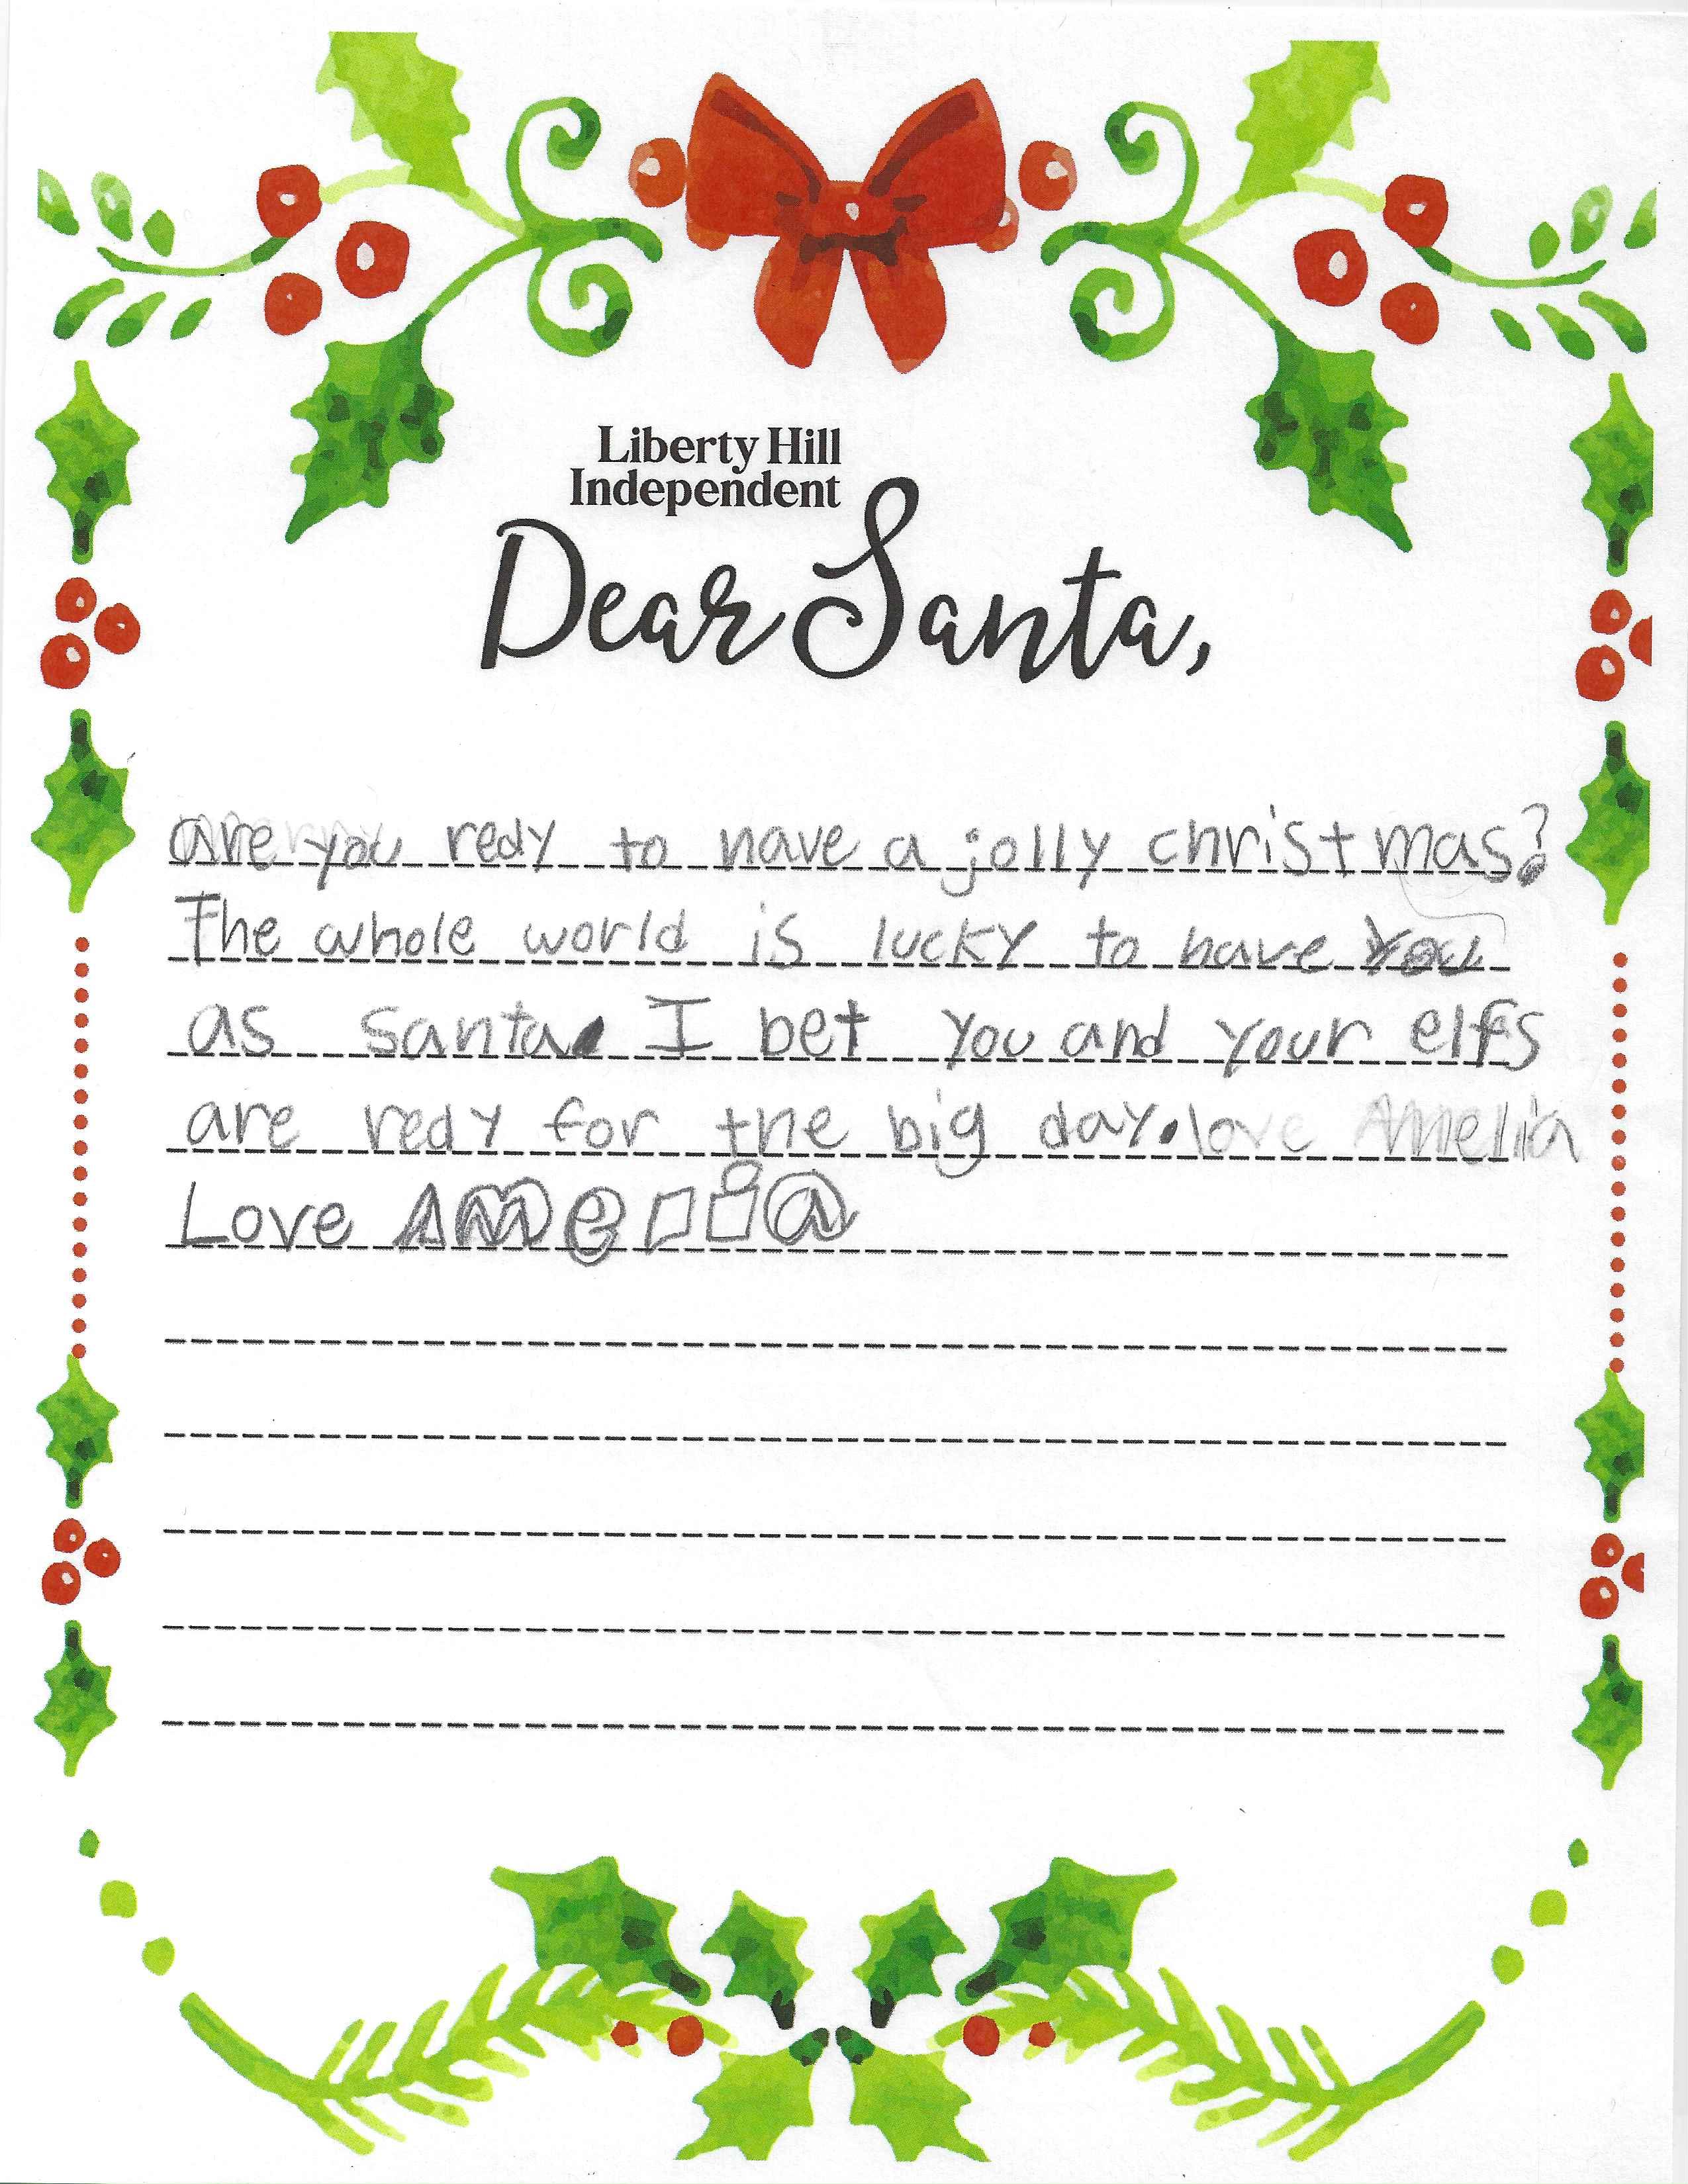 Liberty Hill
Independent
Dear Santa,
are you redy to have a jolly christmas?
The whole world is lucky to have you
as santa. I bet you and your elfs
are redy for the big day. love Amelia
Love Amelia